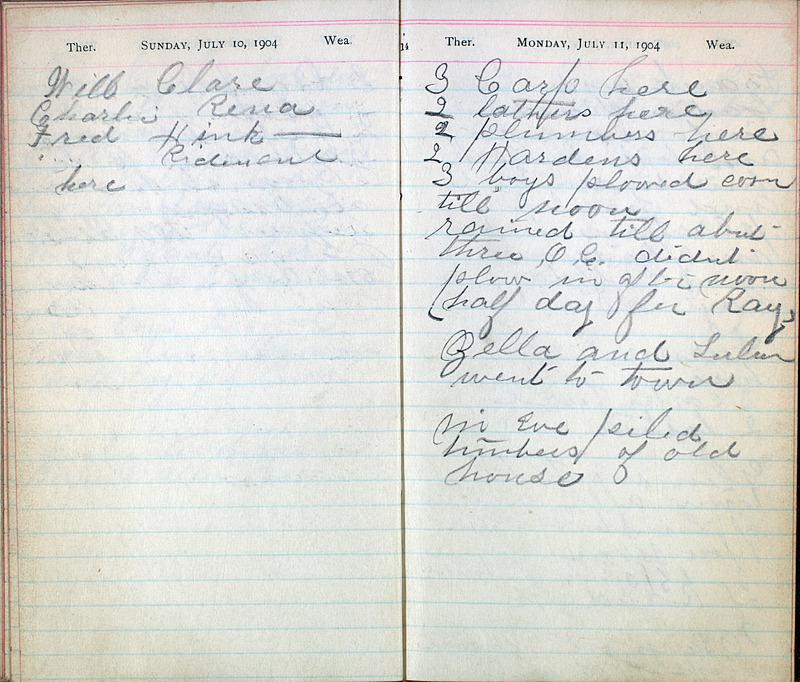 Ther. SUNDAY, JULY 10, 1904 Wea.
Will Clare
Charlie Rena
Fred Hink —
" "
here
14
Ther. MONDAY, JULY 11, 1904 Wea.
3 Carp here
2 lathers here
2 plumbers here
2 Hardens here
3 boys plowed corn
till noon
rained till about
three O.C. didnt
plow in after noon
(half day for Ray)
Zella and
went to town
in Eve piled
timbers of old
house